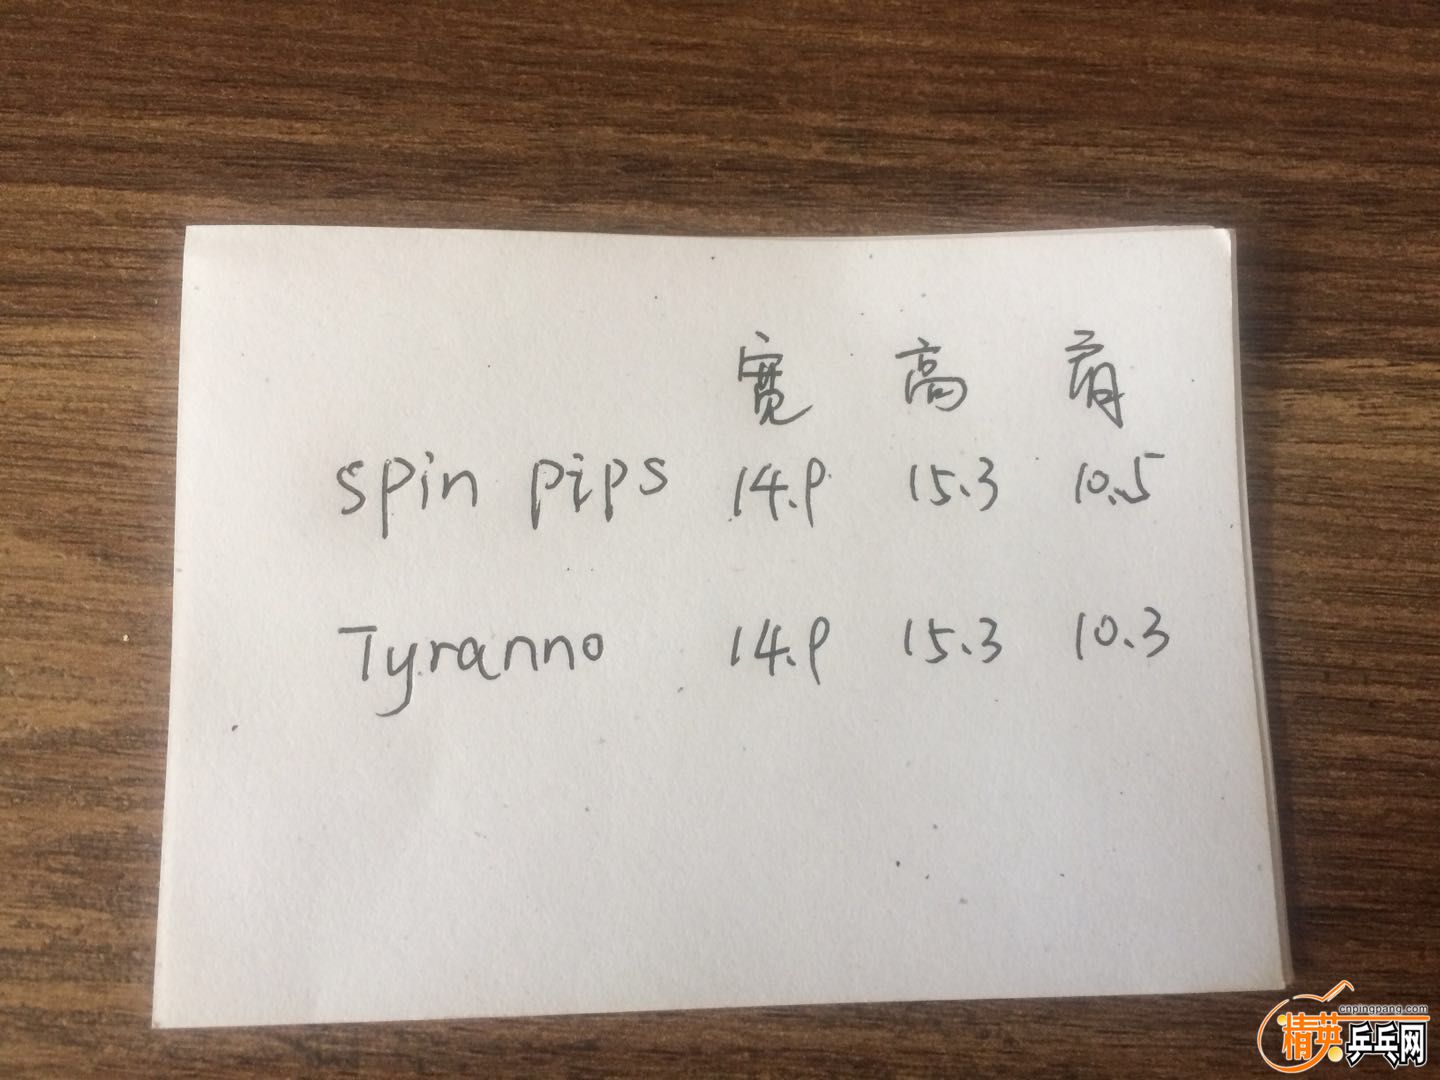 宽 高 肩
spin pips 14.9 15.3 10.5
Tyranno 14.9 15.3 10.3
cnpingpang.com
精英乒乓网